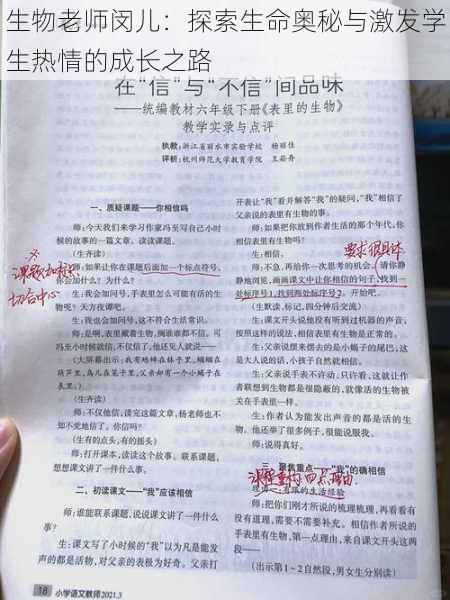 生物老师闵儿：探索生命奥秘与激发学
生热情的成长之路
在“信”与“不信”间品味
——统编教材六年级下册《表里的生物》
教学实录与点评
执教：浙江省丽水市实验学校 杨丽佳
评析：杭州师范大学教育学院 王崧舟
一、质疑课题——你相信吗
师：今天我们来学习作家冯至写自己小时
候的故事的一篇文章。读读课题。
（生齐读）
师：如果让你在课题后面加一个标点符号，
你会加什么？为什么？
生：我会加问号，手表里怎么可能有活的生
物呢？天方夜谭吧。
生：我也会加问号，这不符合生活常识。
师：是啊，表里藏着生物，糊谁谁都不信。可
冯至小时候就信，不仅信了，他还见人就说——
（大屏幕出示：我有蛐蛐在钵子里，蝈蝈在
葫芦里，鸟儿在笼子里，父亲却有一个小蝎子在
表里。）
（生齐读）
师：不仅他信，读完这篇文章，杨老师也不
知不觉地信了。你信吗？
（生有的点头，有的摇头）
师：打开本，读读这个故事。联系课题，
想想课文讲了一件什么事。
二、初读课文——“我”应该相信
师：谁能联系课题，说说课文讲了一件什么
事？
生：课文写了小时候的“我”以为凡是能发
声的都是活物，对父亲的表极为好奇。父亲打
开表让“我”看并解答“我”的疑问，“我”相信了
父亲说的表里有生物的事。
师：如果把你放到作者生活的那个年代，你
相信表里有生物吗？
生：相信。
师：不急，再给你一次思考的机会。请你静
静地浏览，画画课文中让你相信的句子，找到一
处标序号1，找到两处标序号2。开始吧。
（生默读、标记，四分钟后交流）
生：课文开头说他没有听到过机器的声音，
按照这样的说法，相信表里有生物是正常的。
生：父亲说摆来摆去的是小蝎子的尾巴，这
是大人说的话，小孩子自然就相信。
生：父亲表不许动，只许看，这就让作
者联想到生物都是很隐蔽的，就像活的生物被
关在手表里一样。
生：作者认为能发出声音的都是活的生
物。他还举了很多例子，很能说服我。
师：说得真好。
三、聚焦重点——“我”的确相信
师：把你们刚才所说的梳理梳理，再看看有
没有道理，需要不需要补充。相信作者所说的
手表里有生物，第一点理由，来自课文开头这两
段——
（出示第1~2自然段，男女生分别读）
要求很具体
切合中心
18 小学语文教师2021.3